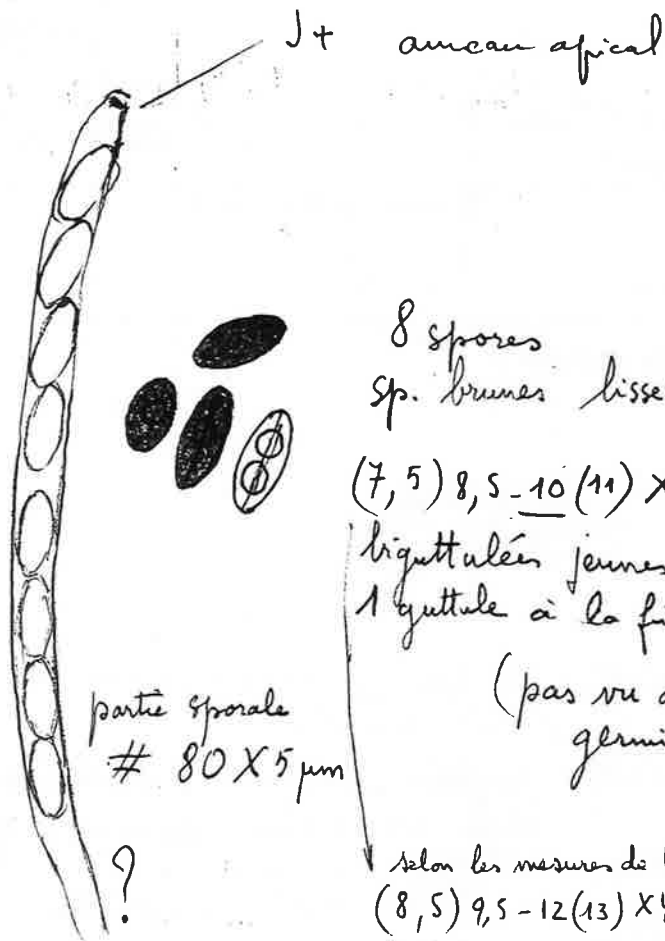 J+ anneau apical
8 spores
sp. brunes lisse
(7,5) 8,5 - 10 (11) X
biguttulées jeunes
1 guttule à la fi
(pas vu
germi
partie sporale
# 80 X 5 µm
?
selon les mesures de
(8,5) 9,5 - 12 (13) X